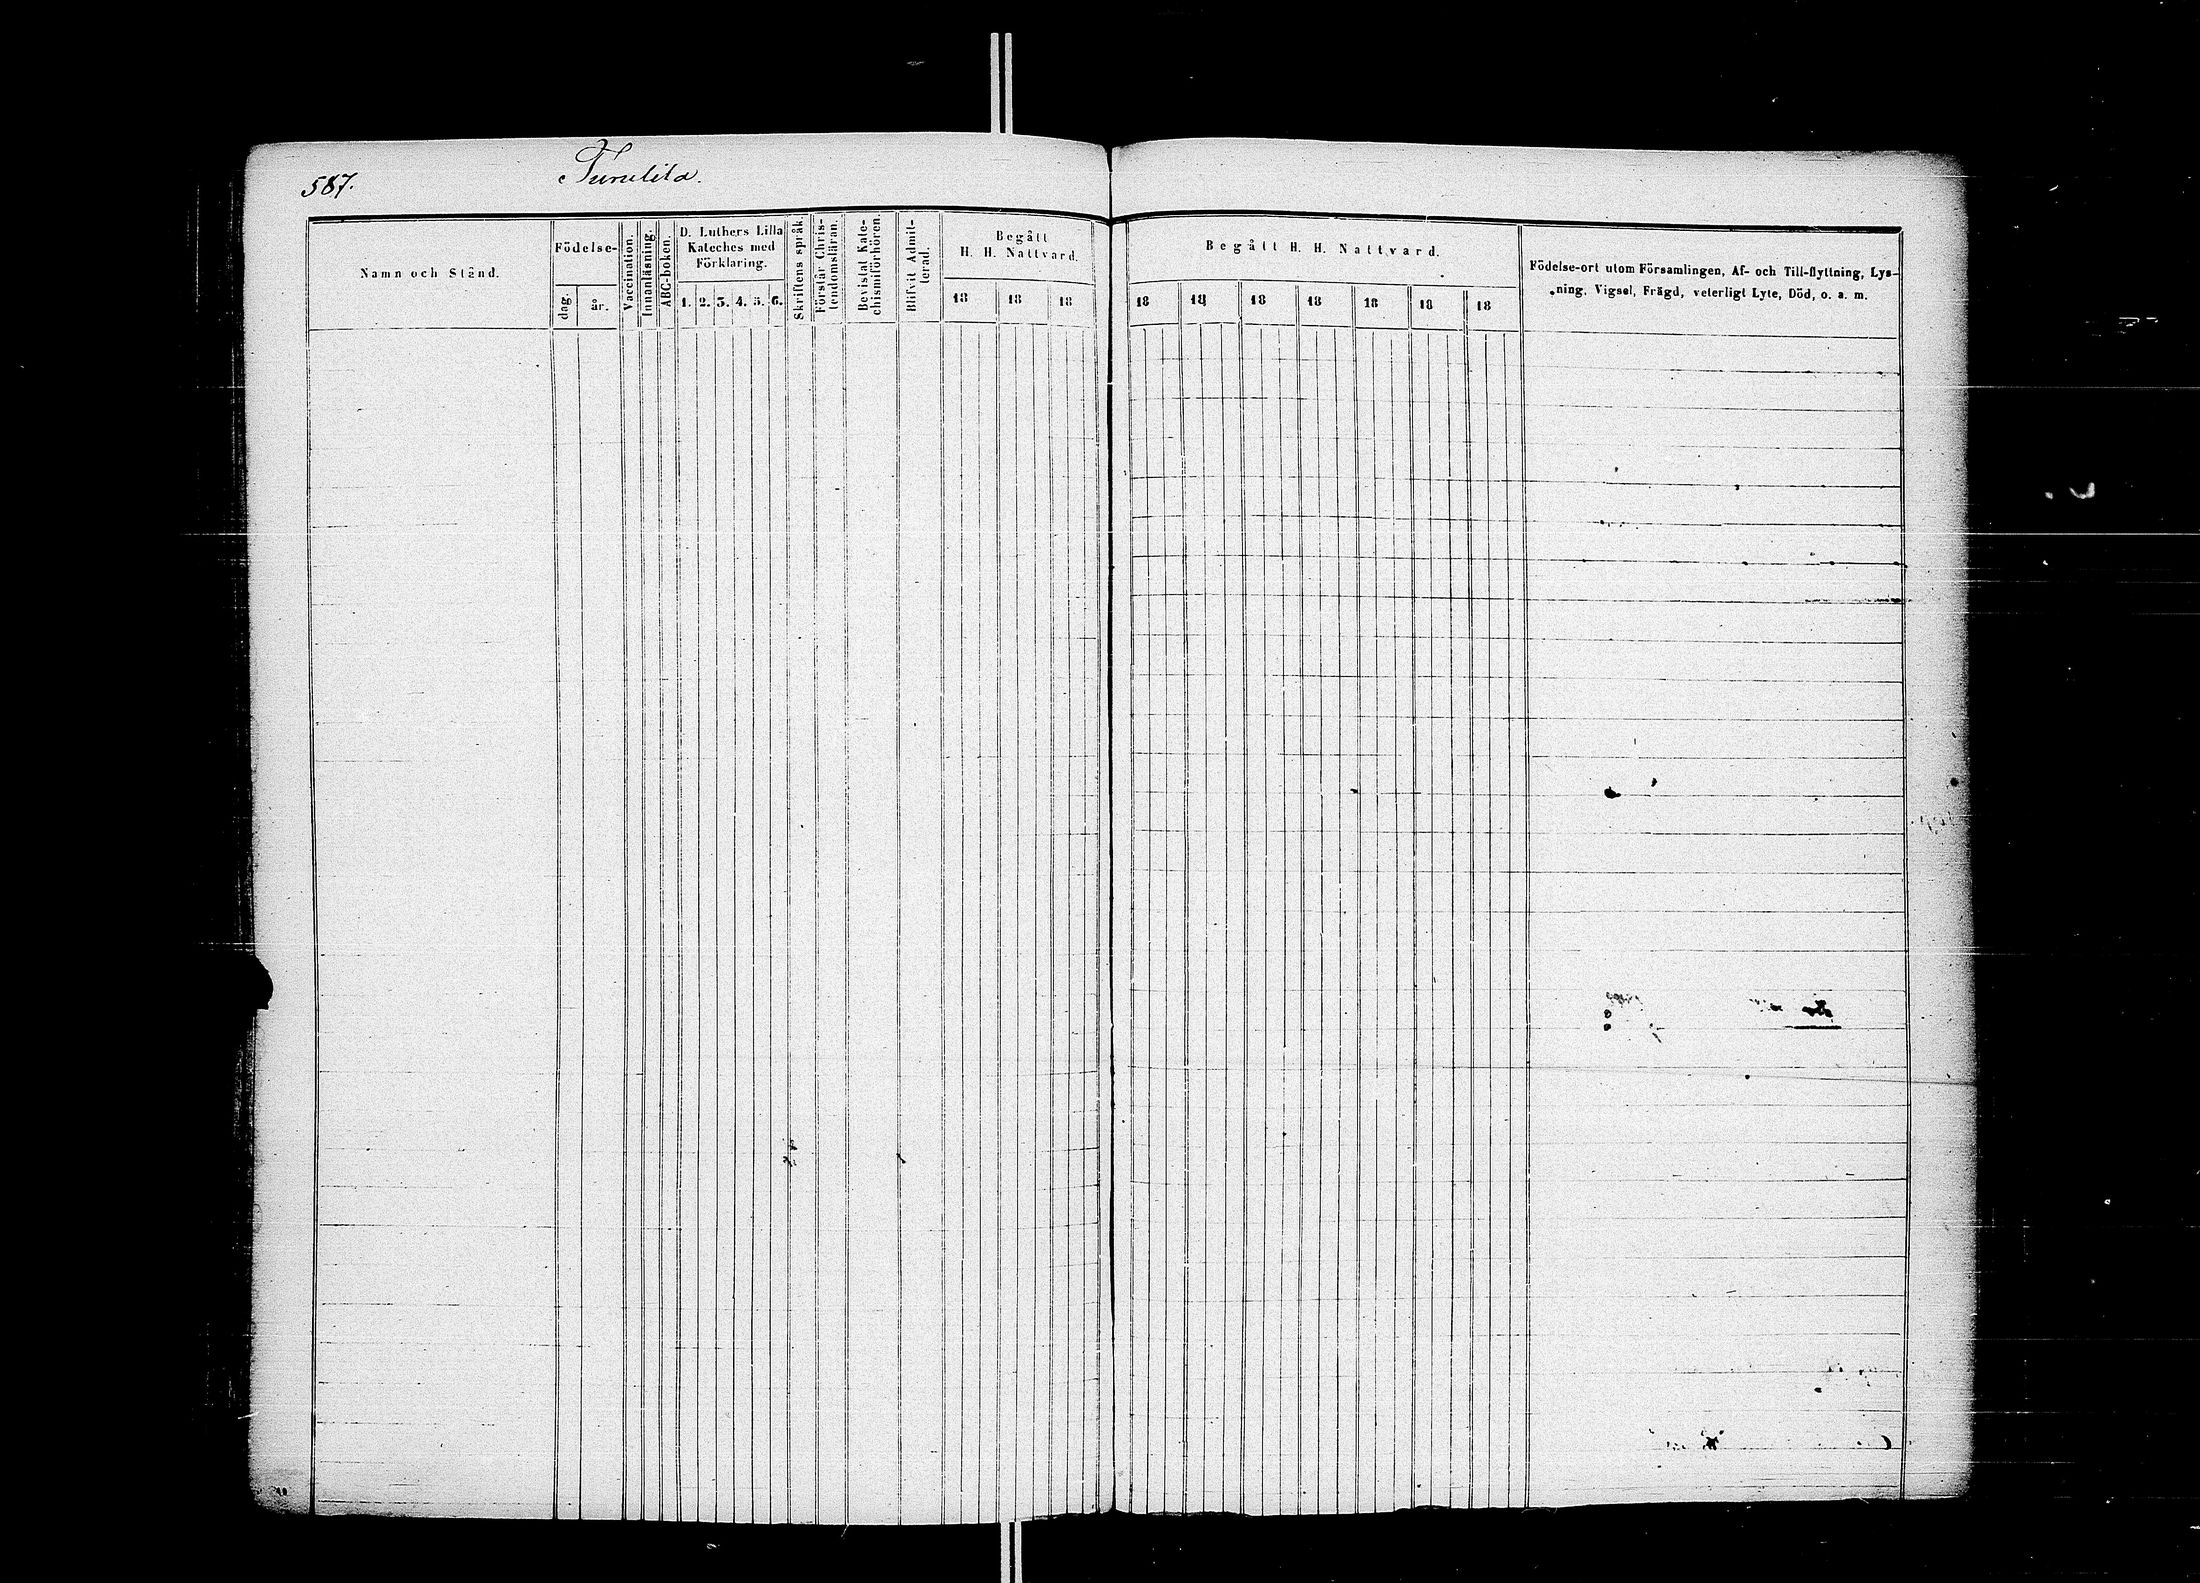 587.
Namn och Stånd.
Födelse-
dag.
år.
Vaccination.
Innanläsning.
ABC-boken.
D. Luthers Lilla
Kateches med
Förklaring.
1. 2. 3. 4. 5. 6.
Skriftens språk.
Förstår Chris-
tendomsläran.
Bevistat Kate-
chismiförhören.
Blifvit Admit-
terad.
Begått
H. H. Nattvard.
18 18 18
Begått H. H. Nattvard.
18 18 18 18 18 18 18
Födelse-ort utom Församlingen, Af- och Till-flyttning, Lys-
ning, Vigsel, Frägd, veterligt Lyte, Död, o. a. m.